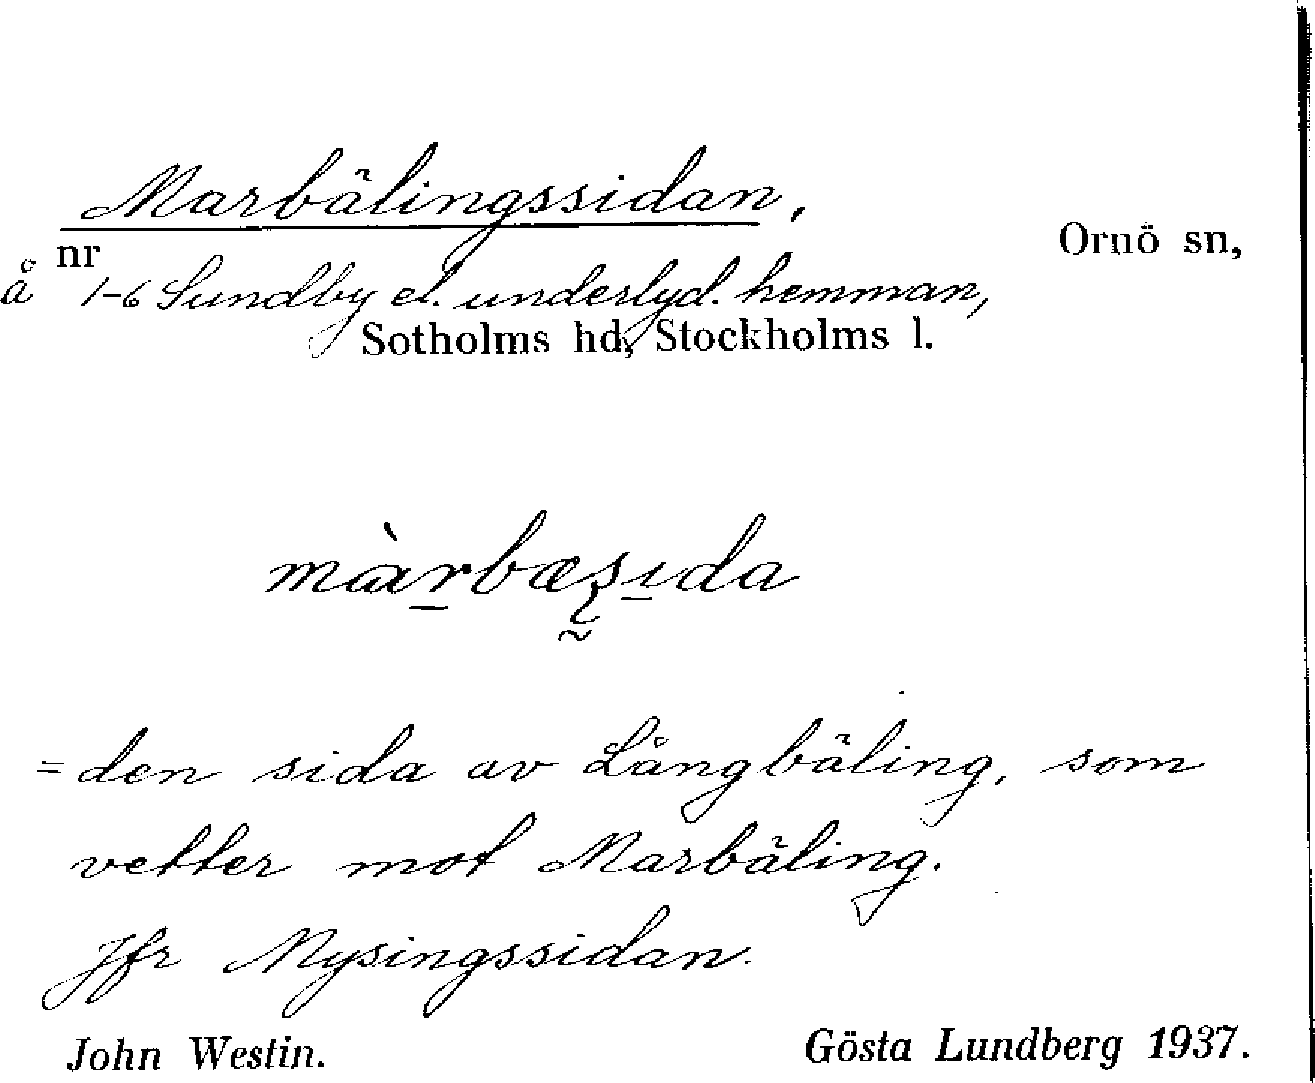 Marbälingssidan,
Ornö sn,
å nr 1-6 Sundby el. underlyd. hemman,
Sotholms hd, Stockholms l.
màrbæsıda
= den sida av Långbäling, som
vetter mot Marbäling.
Jfr Mysingssidan.
John Westin.
Gösta Lundberg 1937.